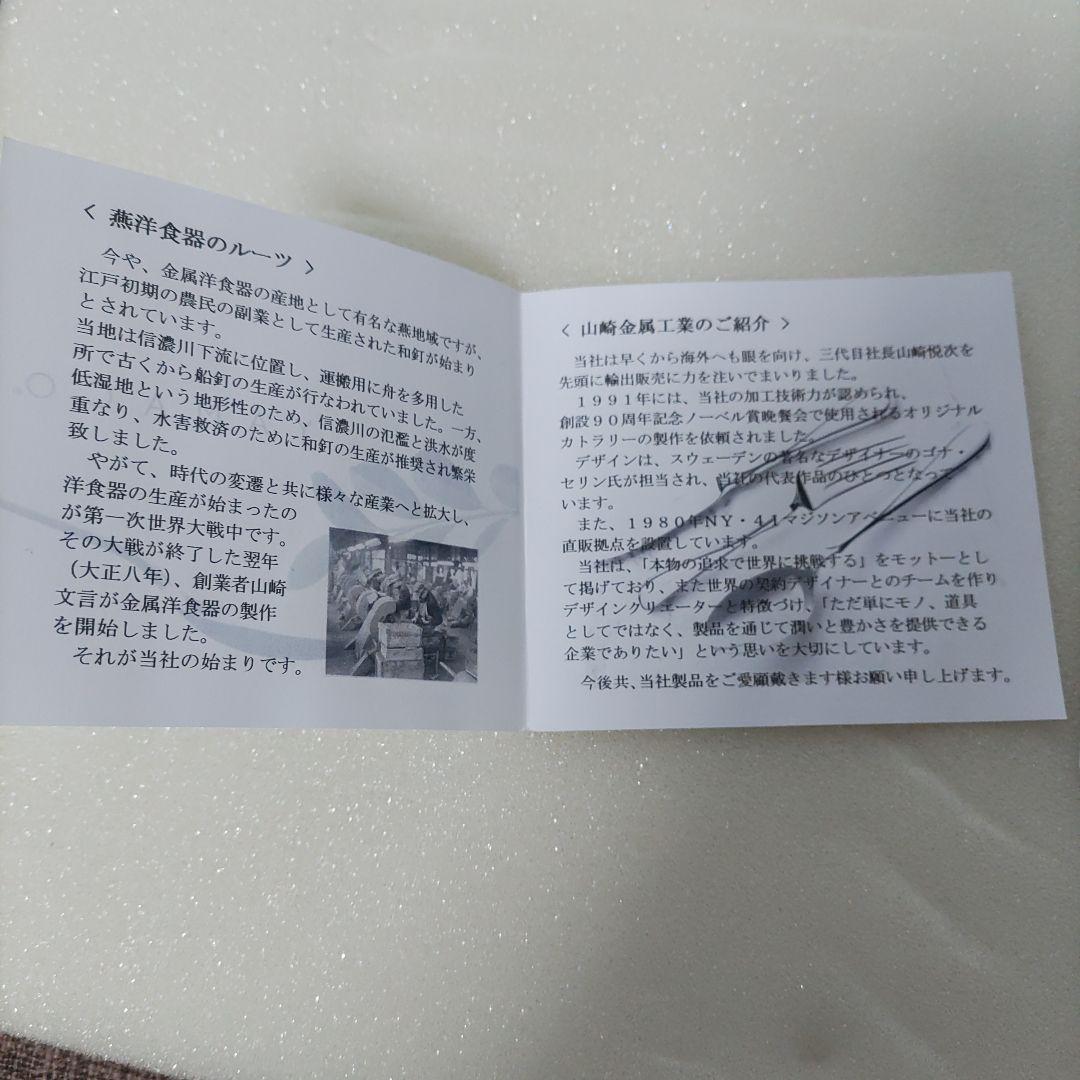 〈 燕洋食器のルーツ 〉
今や、金属洋食器の産地として有名な燕地域ですが、
江戸初期の農民の副業として生産された和釘が始まり
とされています。
当地は信濃川下流に位置し、運搬用に舟を多用した
所で古くから船釘の生産が行なわれていました。一方、
低湿地という地形性のため、信濃川の氾濫と洪水が度
重なり、水害救済のために和釘の生産が推奨され繁栄
致しました。
やがて、時代の変遷と共に様々な産業へと拡大し、
洋食器の生産が始まったの
が第一次世界大戦中です。
その大戦が終了した翌年
（大正八年）、創業者山崎
文言が金属洋食器の製作
を開始しました。
それが当社の始まりです。
〈 山崎金属工業のご紹介 〉
当社は早くから海外へも眼を向け、三代目社長山崎悦次を
先頭に輸出販売に力を注いでまいりました。
１９９１年には、当社の加工技術力が認められ、
創設９０周年記念ノーベル賞晩餐会で使用されるオリジナル
カトラリーの製作を依頼されました。
デザインは、スウェーデンの著名なデザイナーのゴナ・
セリン氏が担当され、当社の代表作品のひとつとなって
います。
また、１９８０年ＮＹ・４１マジソンアベニューに当社の
直販拠点を設置しています。
当社は、「本物の追求で世界に挑戦する」をモットーとし
て掲げており、また世界の契約デザイナーとのチームを作り
デザインクリエーターと特徴づけ、「ただ単にモノ、道具
としてではなく、製品を通じて潤いと豊かさを提供できる
企業でありたい」という思いを大切にしています。
今後共、当社製品をご愛顧戴きます様お願い申し上げます。